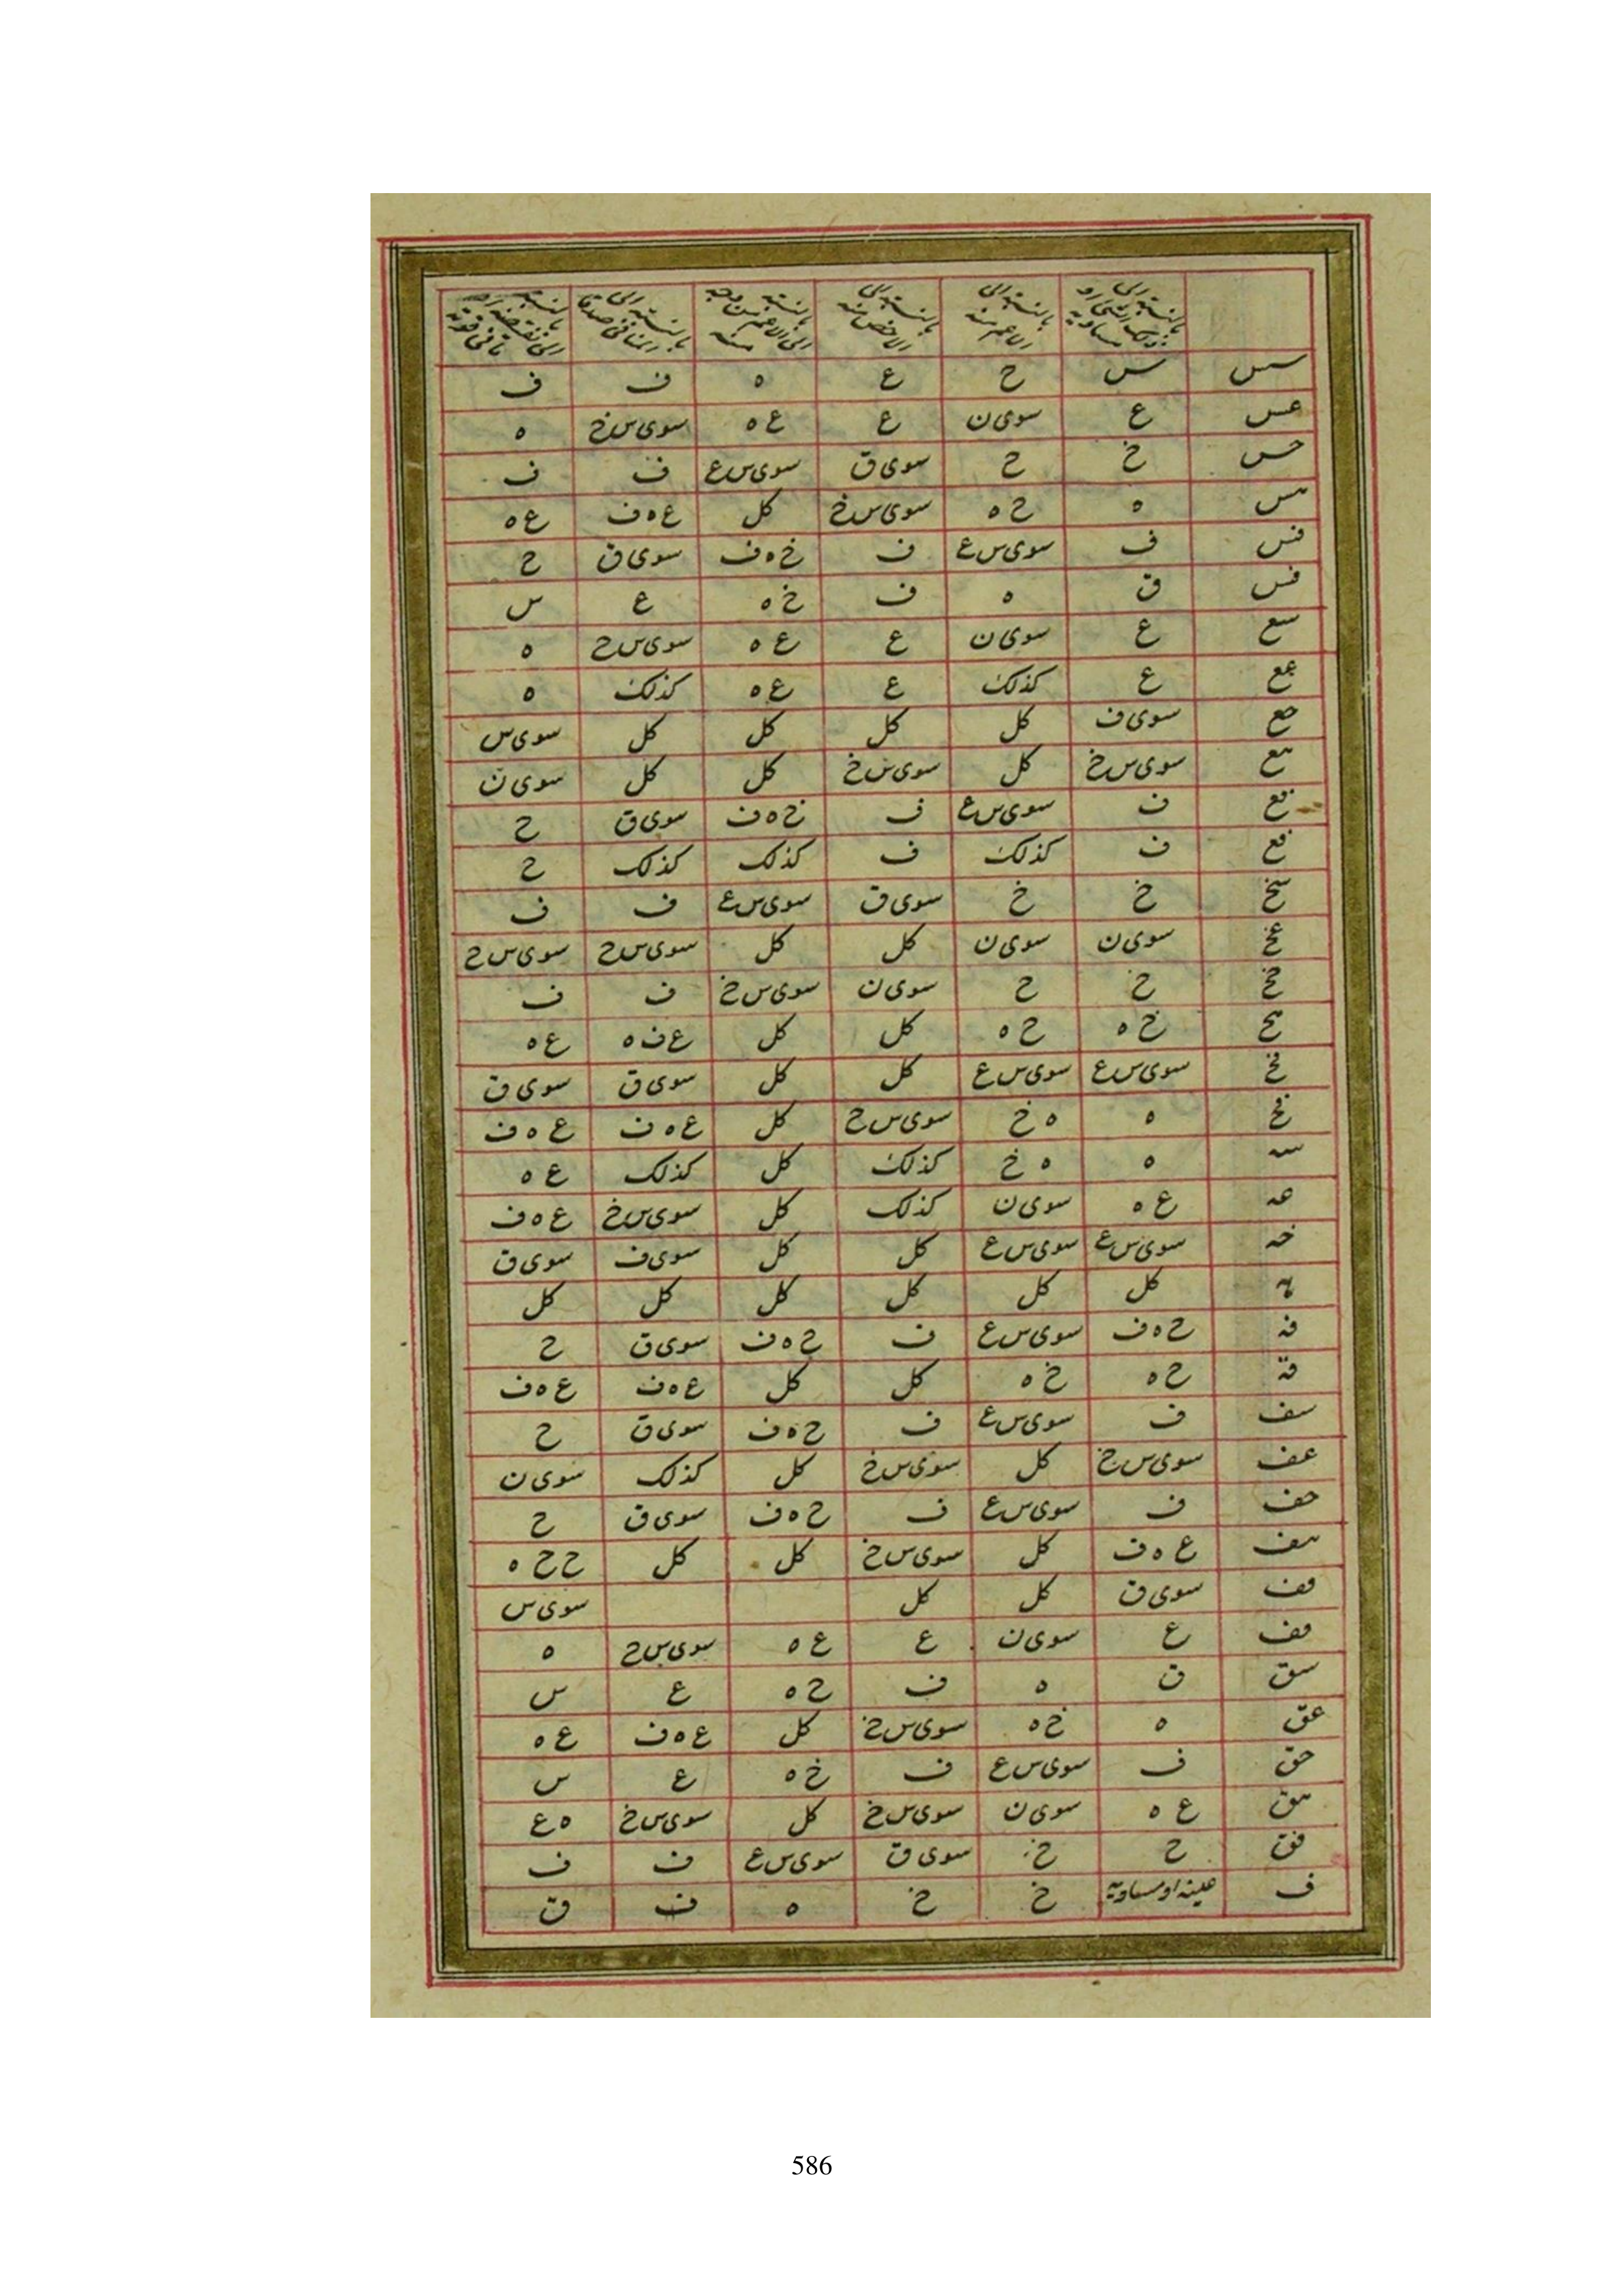 بالنسبة الى ذلك الشىء او مساويه بالنسبة الى الاعم منه بالنسبة الى الاخص منه بالنسبة الى الاعم من وجه منه بالنسبة الى المنافى صدقا بالنسبة الى نقيضه او
سس س ح ع ه ف ف
عس ع سوى ن ع ع ه سوى س خ ه
حس خ ح سوى ق سوى س ع ف ف
هس ه ح ه سوى س خ كل ع ه ف ع ه
فس ف سوى س ع ف خ ه ف سوى ق ح
قس ق ه ف خ ه ع س
سع ع سوى ن ع ع ه سوى س ح ه
عع ع كذلك ع ع ه كذلك ه
حع سوى ف كل كل كل كل سوى س
هع سوى س خ كل سوى س خ كل كل سوى ن
فع ف سوى س ع ف خ ه ف سوى ق ح
قع ف كذلك ف كذلك كذلك ح
سخ خ خ سوى ق سوى س ع ف ف
عخ سوى ن سوى ن كل كل سوى س ح سوى س ح
خخ خ ح سوى ن سوى س خ ف ف
هح خ ه ح ه كل كل ع ف ه ع ه
فخ سوى س ع سوى س ع كل كل سوى ق سوى ق
قخ ه ه خ سوى س ح كل ع ه ف ع ه ف
سه ه ه خ كذلك كل كذلك ع ه
عه ع ه سوى ن كذلك كل سوى س خ ع ه ف
خه سوى س ع سوى س ع كل كل سوى ف سوى ق
هه كل كل كل كل كل كل
فه ح ه ف سوى س ع ف ح ه ف سوى ق ح
قه ح ه خ ه كل كل ع ه ف ع ه ف
سف ف سوى س ع ف ح ه ف سوى ق ح
عف سوى س خ كل سوى س خ كل كذلك سوى ن
حف ف سوى س ع ف ح ه ف سوى ق ح
هف ع ه ف كل سوى س خ كل كل ح ح ه
فف سوى ق كل كل سوى س
قف ع سوى ن ع ع ه سوى س ح ه
سق ق ه ف ح ه ع س
عق ه خ ه سوى س خ كل ع ه ف ع ه
حق ف سوى س ع ف خ ه ع س
هق ع ه سوى ن سوى س خ كل سوى س خ ه ع
فق ح خ سوى ق سوى س ع ف ف
ف عينه او مساويه خ خ ه ف ق
586